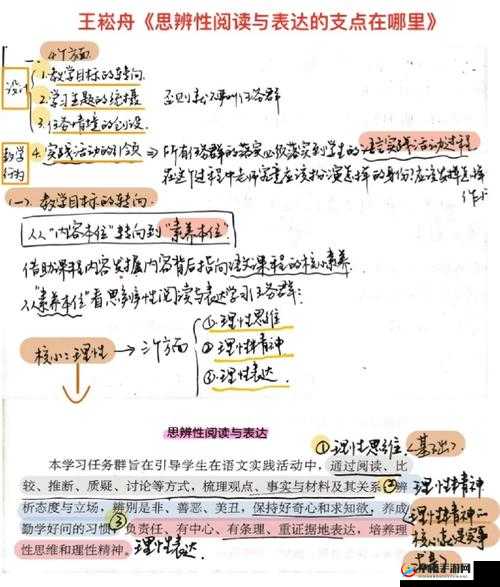 王崧舟《思辨性阅读与表达的支点在哪里》
一、4个方面
设计
1.教学目标的转向
2.学习主题的统摄 否则就不叫任务群
3.任务情境的创设
教学行为
4.实践活动的引领 ⇒ 所有任务群的落实必依落实到学生的语言实践活动过程
在这个过程中老师究竟应该扮演怎样的身份?应该发挥怎样作用
(一)教学目标的转向
从"内容本位"转向到"素养本位"
借助课程内容发掘内容背后指向语文课程的核心素养
从"素养本位"看思辨性阅读与表达学习任务群:
核心:理性 → 三个方面
①理性思维
②理性精神
③理性表达
思辨性阅读与表达
①理性思维(基础)
本学习任务群旨在引导学生在语文实践活动中,通过阅读、比
较、推断、质疑、讨论等方式,梳理观点、事实与材料及其关系;辨
②理性精神
析态度与立场,辨别是非、善恶、美丑,保持好奇心和求知欲,养成
理性精神的核心就是实事求是
勤学好问的习惯;③负责任、有中心、有条理、重证据地表达,培养理
性思维和理性精神。理性表达